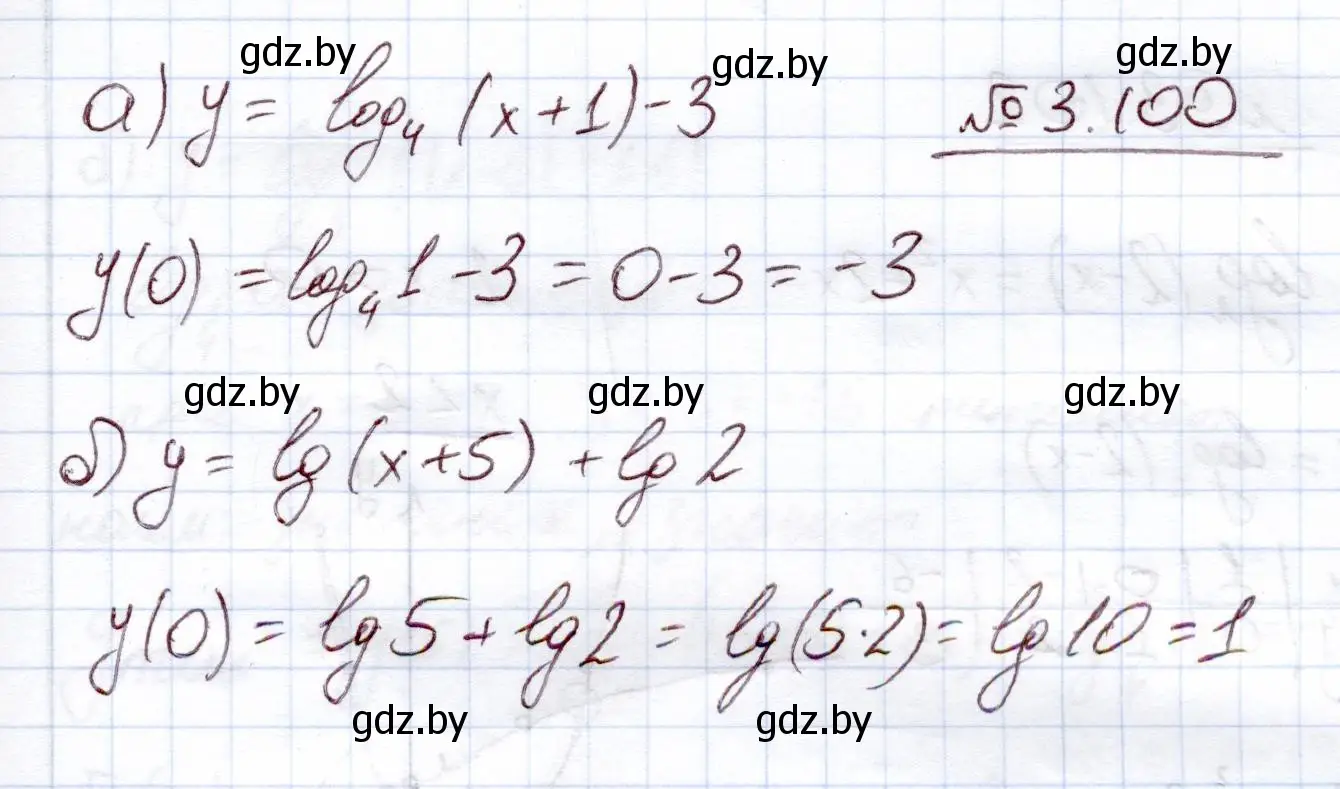 gdz.by gdz.by gdz.by
а) y = log₄ (x+1) - 3 № 3.100
y(0) = log₄ 1 - 3 = 0 - 3 = -3
gdz.by gdz.by gdz.by
б) y = lg(x+5) + lg 2
y(0) = lg 5 + lg 2 = lg(5·2) = lg 10 = 1
gdz.by gdz.by